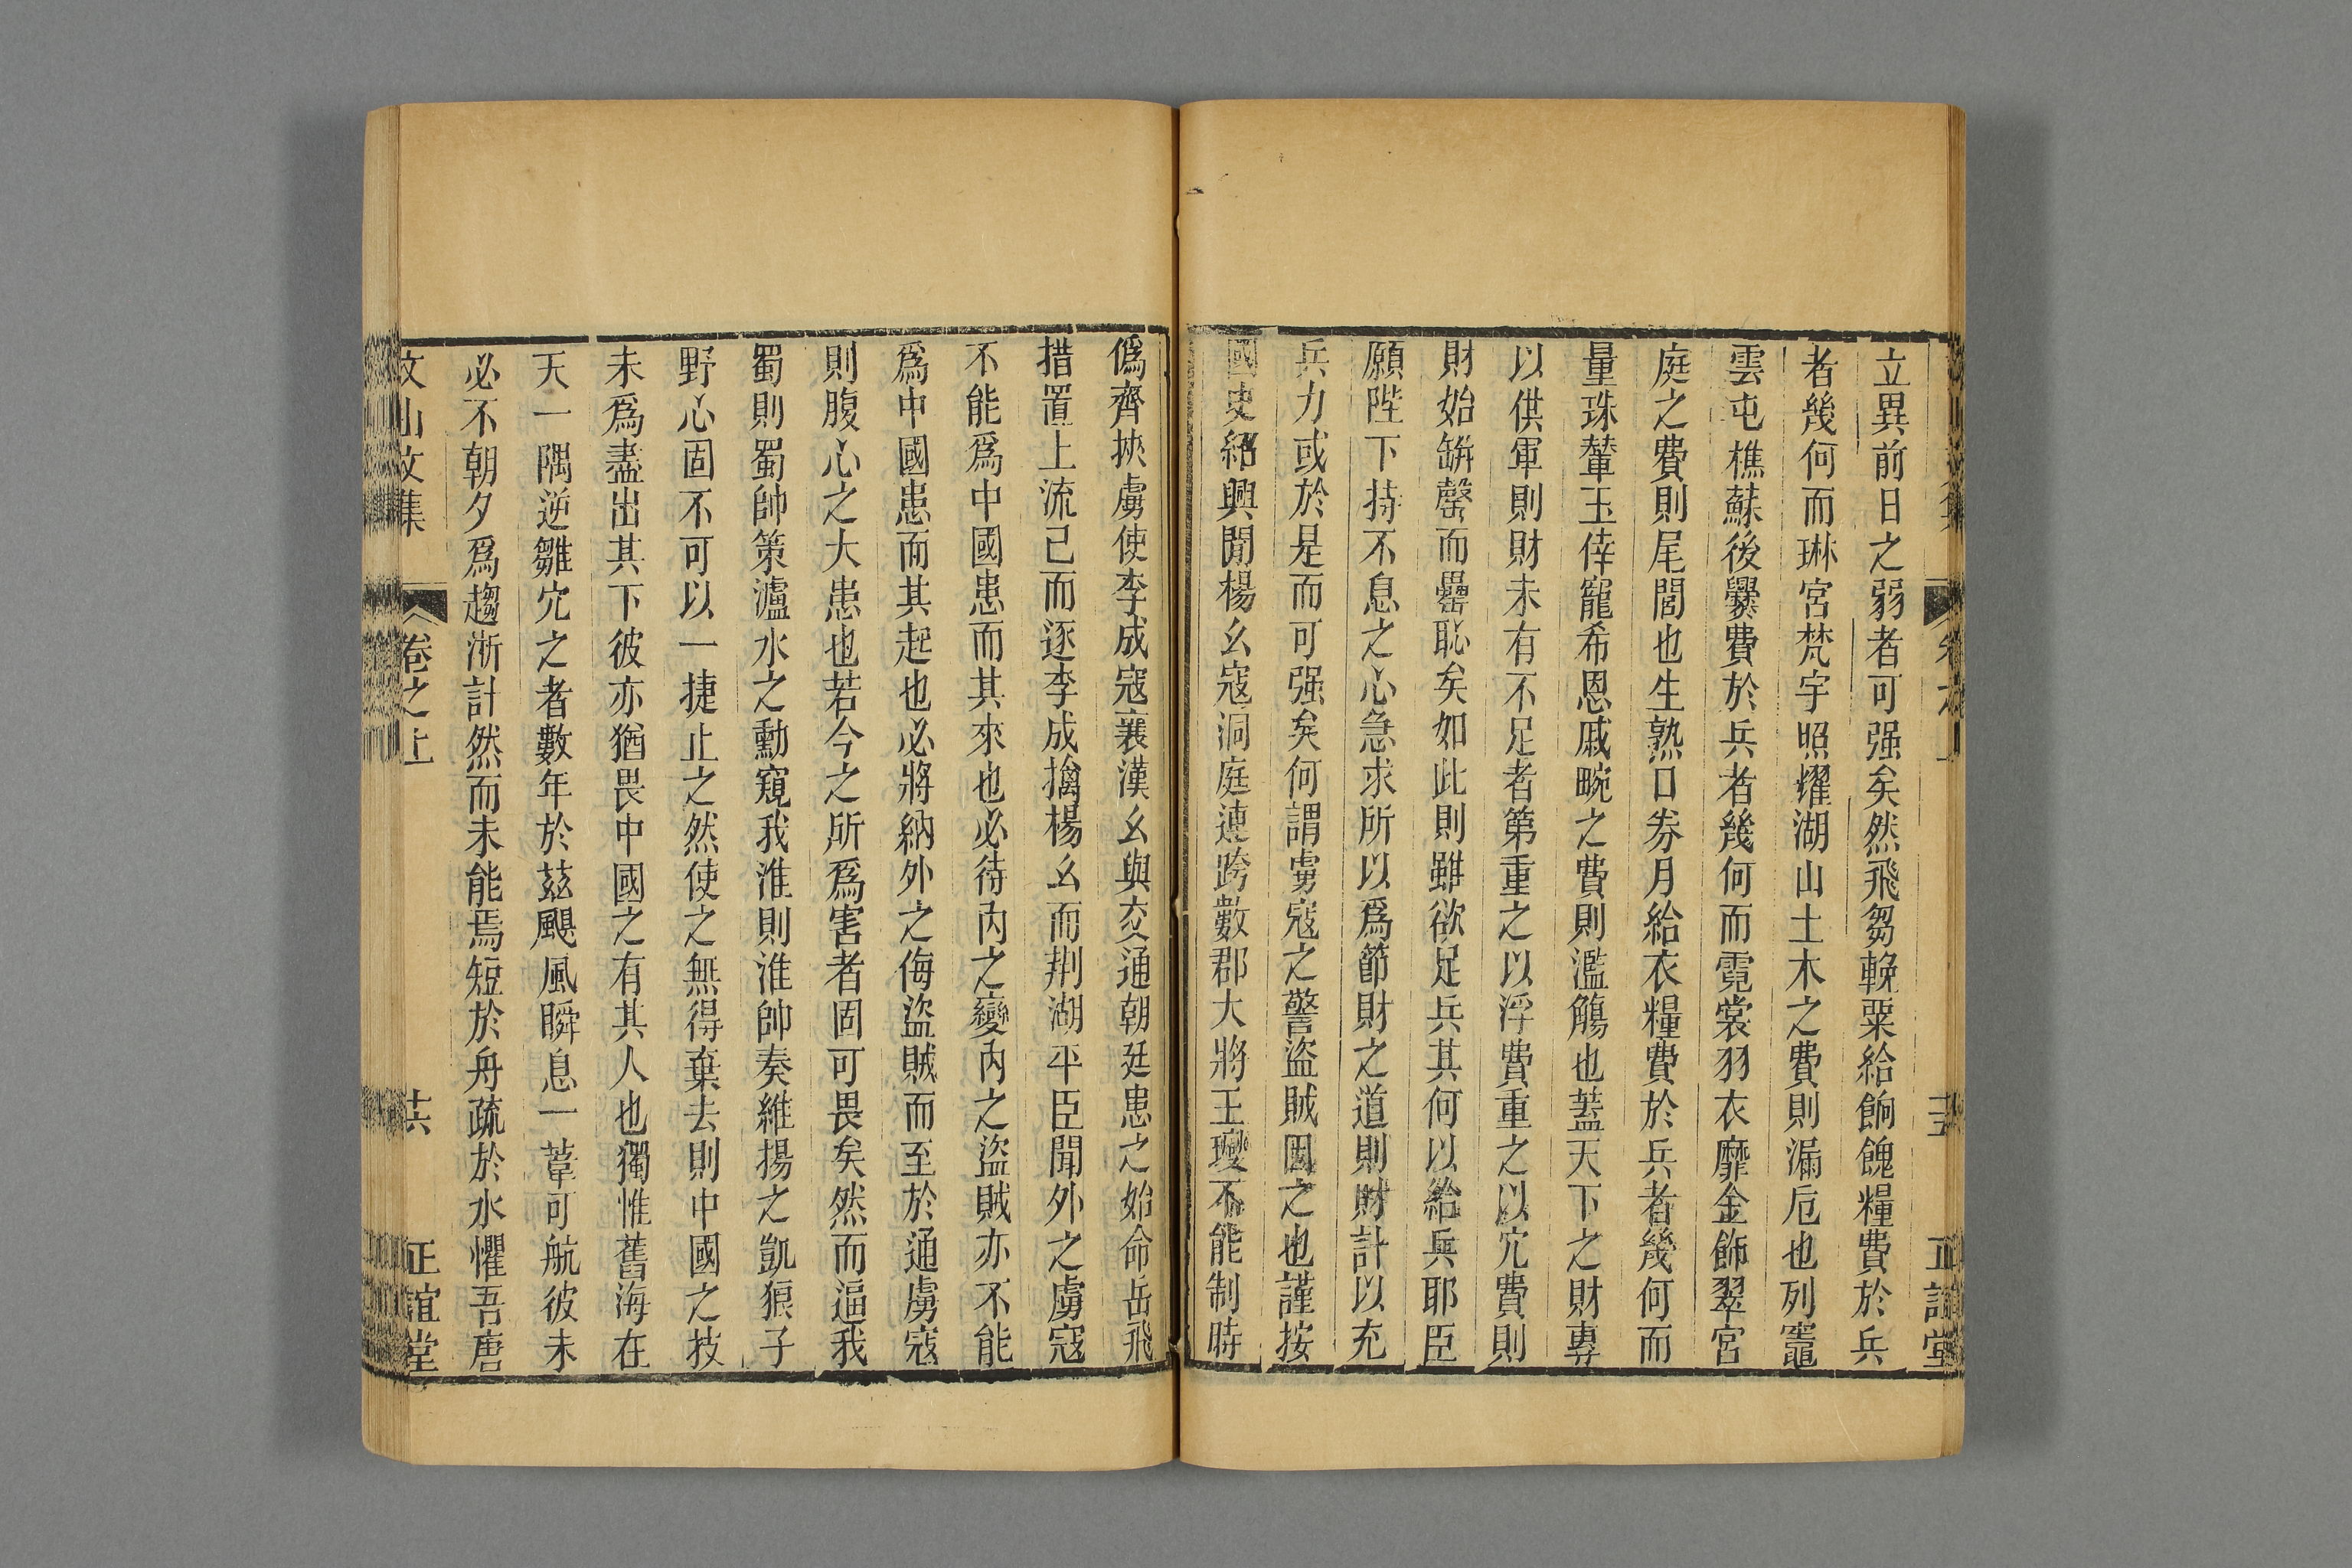 立異前日之弱者可强矣然飛芻輓粟給餉餽糧費於兵
者幾何而琳宮梵宇照耀湖山土木之費則漏卮也列竈
雲屯樵蘇後爨費於兵者幾何而霓裳羽衣靡金飾翠宮
庭之費則尾閭也生熟口劵月給衣糧費於兵者幾何而
量珠輦玉倖寵希恩戚畹之費則濫觴也蓋天下之財專
以供軍則財未有不足者第重之以浮費重之以冗費則
財始缾罄而罍恥矣如此則雖欲足兵其何以給兵耶臣
願陛下持不息之心急求所以爲節財之道則財計以充
兵力或於是而可强矣何謂虜寇之警盜賊因之也謹按
國史紹興間楊么寇洞庭連跨數郡大將王𤫉不能制時
偽齊挾虜使李成寇襄漢么與交通朝廷患之始命岳飛
措置上流已而逐李成擒楊么而荆湖平臣聞外之虜寇
不能爲中國患而其來也必待內之變內之盜賊亦不能
爲中國患而其起也必將納外之侮盜賊而至於通虜寇
則腹心之大患也若今之所爲害者固可畏矣然而逼我
蜀則蜀帥策瀘水之勳窺我淮則淮帥奏維揚之凱狼子
野心固不可以一捷止之然使之無得棄去則中國之技
未爲盡出其下彼亦猶畏中國之有其人也獨惟舊海在
天一隅逆雛穴之者數年於茲颶風瞬息一葦可航彼未
必不朝夕爲趨浙計然而未能焉短於舟疏於水懼吾唐
文山文集 卷之上 共 正誼堂